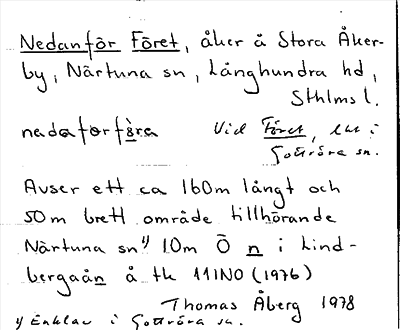 Nedanför Föret, åker å Stora Åker-
by, Närtuna sn, Långhundra hd,
Sthlms l.
nedaforföra Vid Föret, i
Gottröra sn.
Avser ett ca 160m långt och
50m brett område tillhörande
Närtuna sn 1) 10m Ö n i Lind-
bergaån å tk 11I NO (1976)
Thomas Åberg 1978
1) Enklav i Gottröra sn.